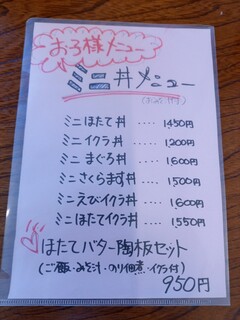 お子様メニュー
ミニ丼メニュー
ミニほたて丼 ‥‥ 1,450円
ミニイクラ丼 ‥‥ 1,200円
ミニまぐろ丼 ‥‥ 1,600円
ミニさくらます丼 ‥‥ 1,500円
ミニえびイクラ丼 ‥‥ 1,600円
ミニほたてイクラ丼 ‥‥ 1,550円
ほたてバター陶板セット
(ご飯・みそ汁・のり佃煮・イクラ付)
950円